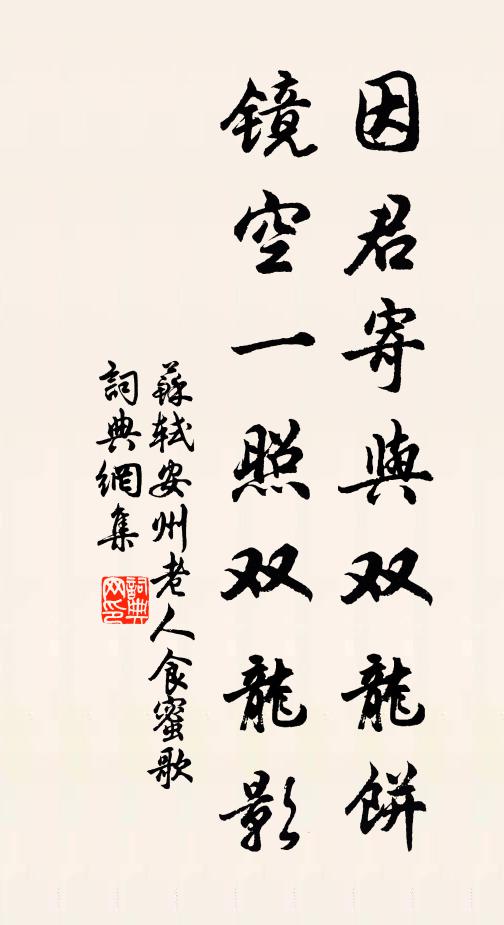 因君寄與双龍餅
镜空一照双龍影
蘇轼安州老人食蜜歌
詞典網集
詞典
网印